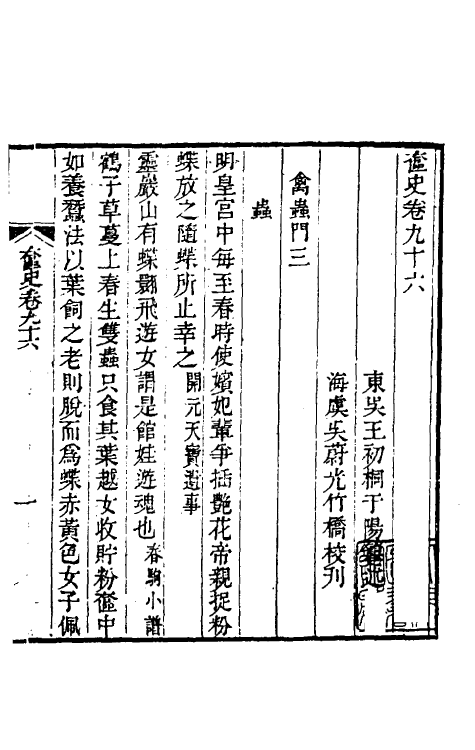 奩史卷九十六
東吳王初桐于陽纂述
海虞吳蔚光竹橋校刋
禽蟲門三
蟲
明皇宮中每至春時使嬪妃輩爭插艷花帝親捉粉
蝶放之隨蝶所止幸之開元天寶遺事
靈巖山有蝶翾飛遊女謂是館娃遊魂也春駒小譜
鶴子草蔓上春生雙蟲只食其葉越女收貯粉奩中
如養蠶法以葉飼之老則脫而為蝶赤黃色女子佩
奩史卷九十六
一